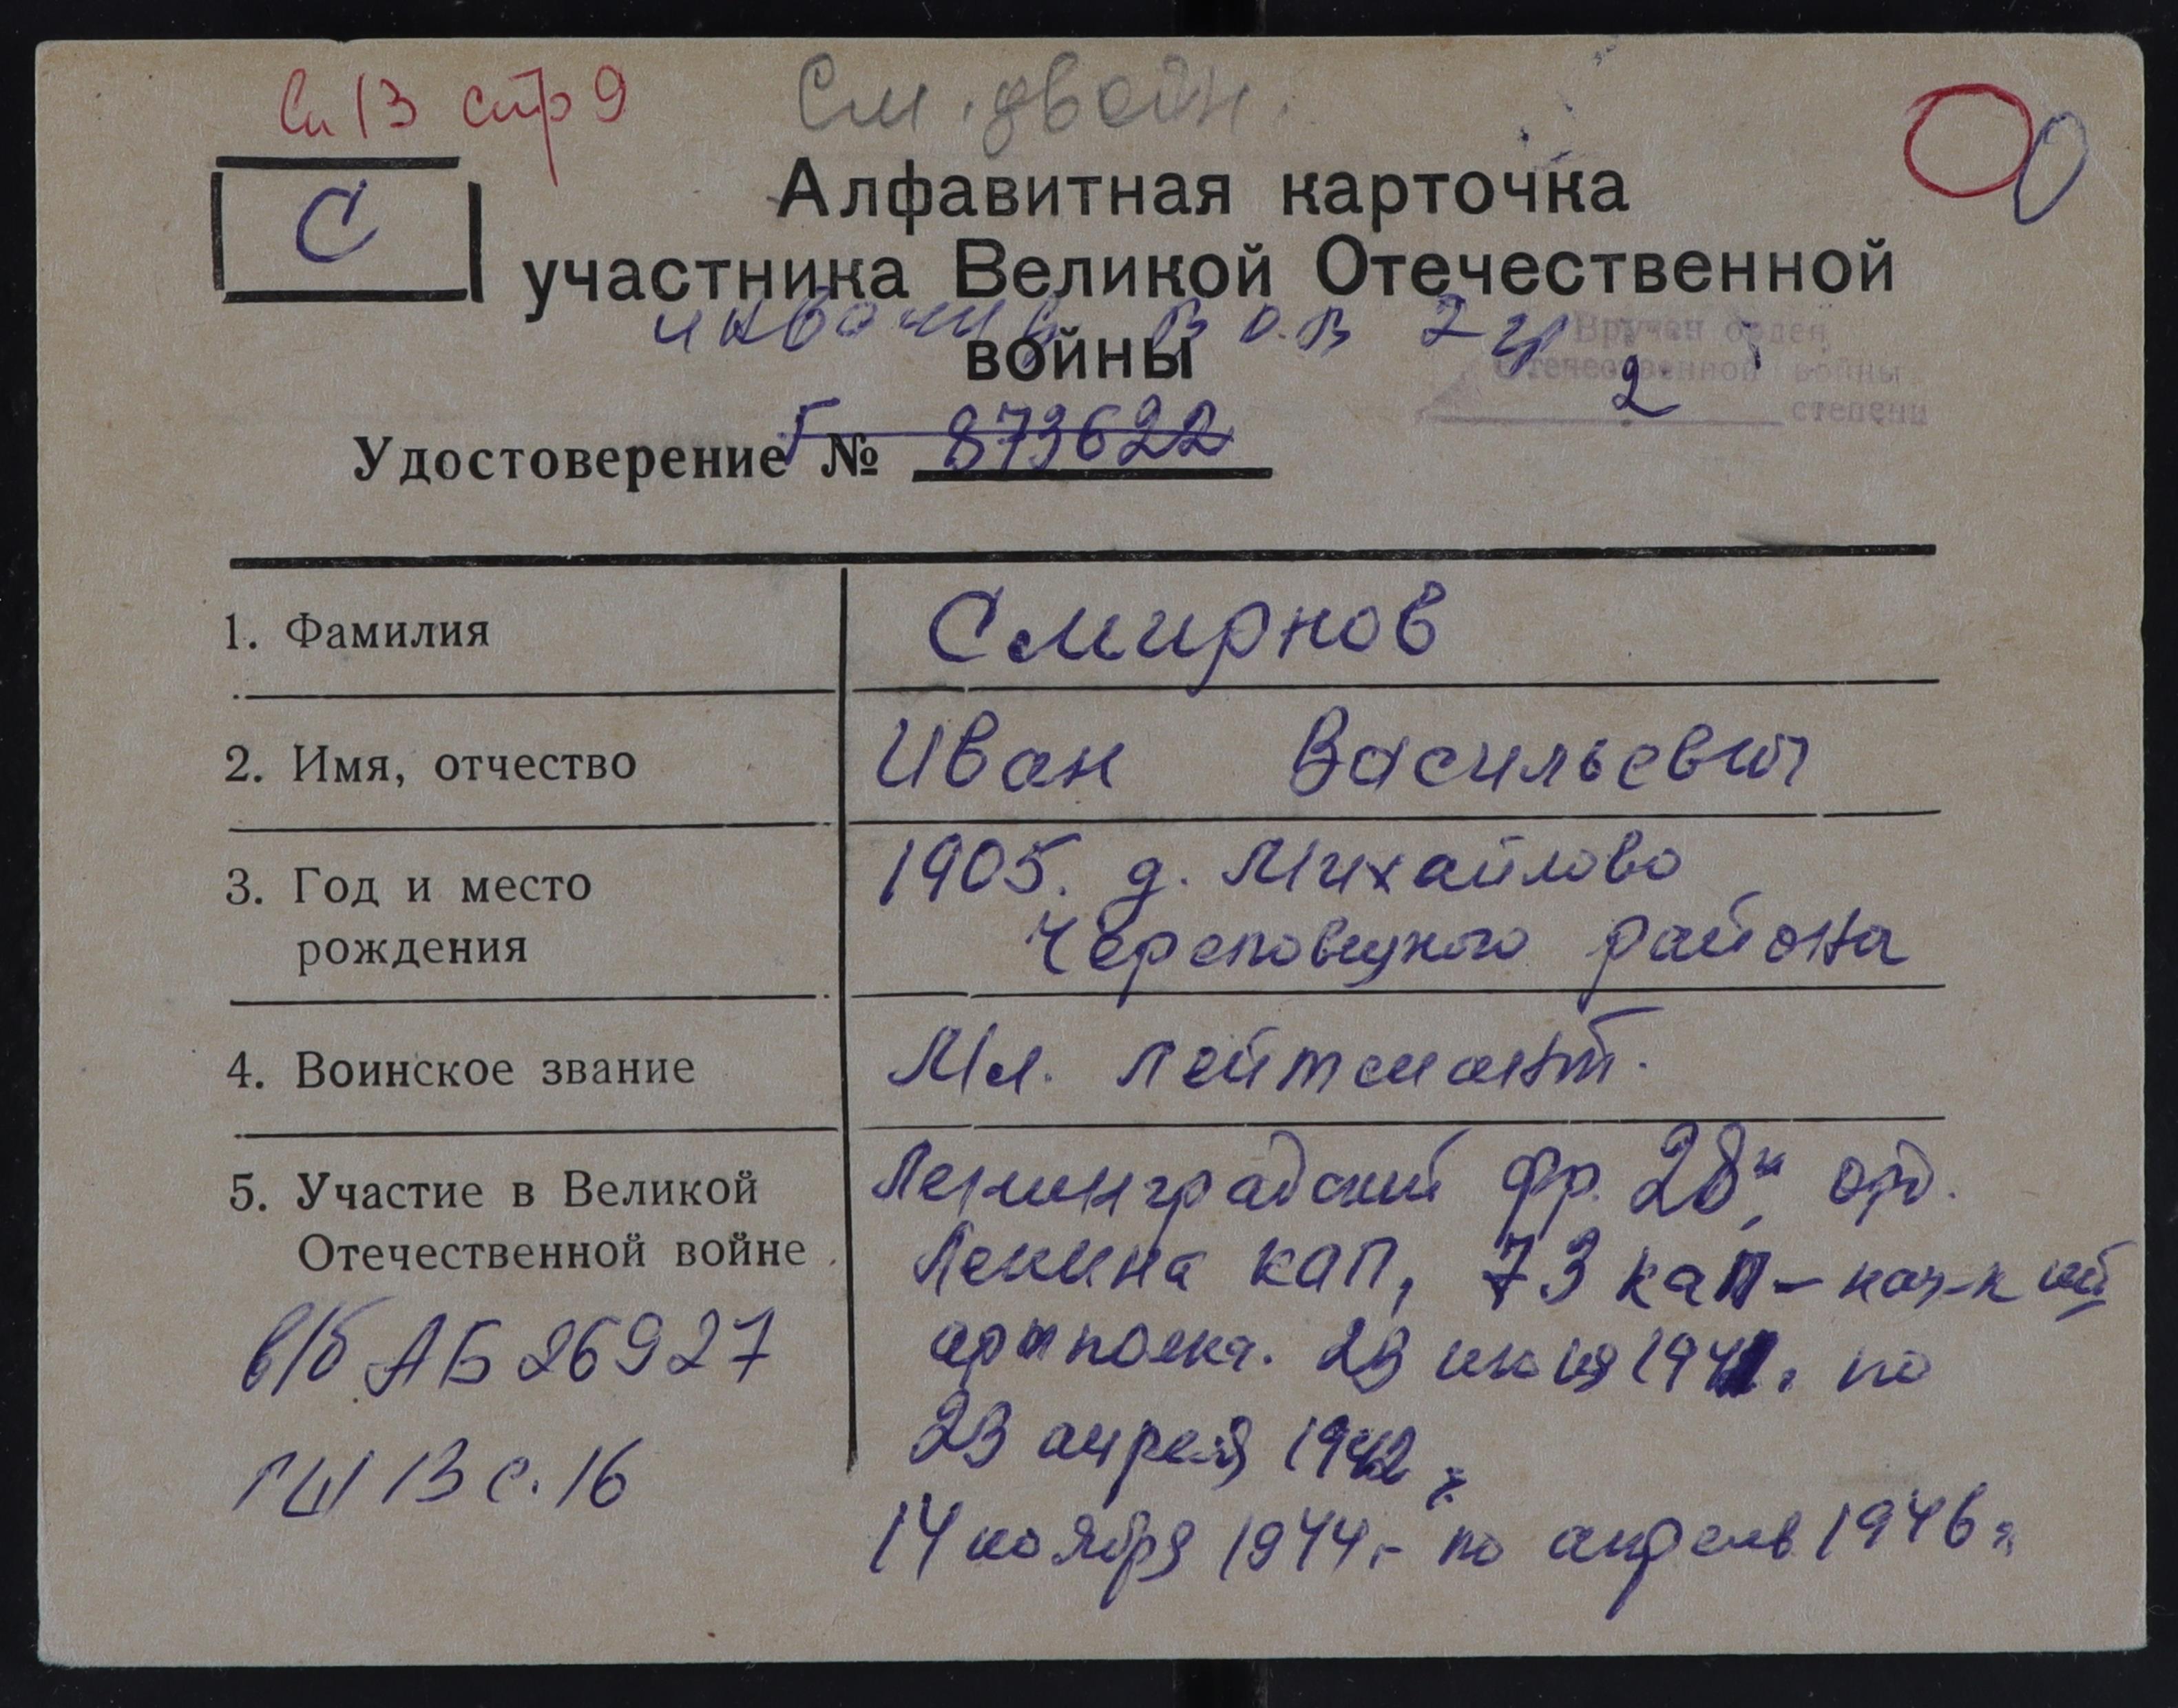 Сп 13 стр 9
См. двойн.
С
Алфавитная карточка
участника Великой Отечественной
войны
инвалид В.О.В 2 гр
Вручен орден
Отечественной войны
2 степени
Удостоверение Г № 873622
1. Фамилия Смирнов
2. Имя, отчество Иван Васильевич
3. Год и место 1905. д. Михайлово
рождения Череповецкого района
4. Воинское звание Мл. лейтенант.
5. Участие в Великой Ленинградский фр. 28й орд.
Отечественной войне Ленина кап, 73 кап -
в/б АБ 26927 артполка. 23 июня 1941. по
23 апреля 1942 г.
ГШ 13 с. 16
14 ноября 1944 г. по апрель 1946 г.